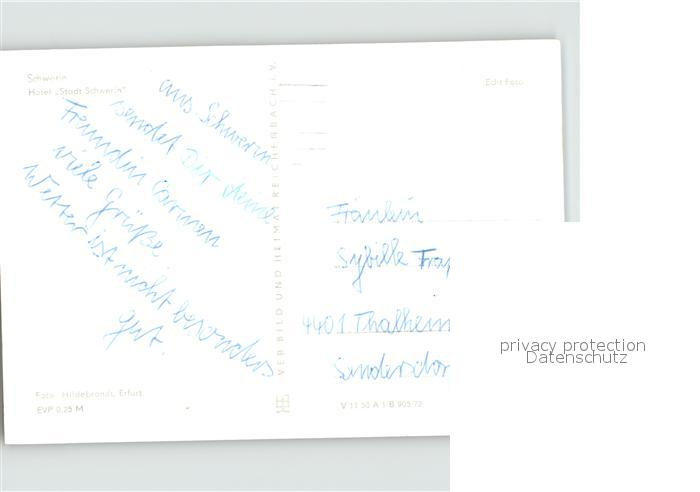 Schwerin
Hotel „Stadt Schwerin"
Echt Foto
aus Schwerin
sendet Dir deine
Freundin Carmen
viele Grüße.
Wetter ist nicht besonders
gut.
VEB BILD UND HEIMAT REICHENBACH i. V.
Fräulein
Sybille
4401 Thalheim
Foto: Hildebrandt, Erfurt
EVP 0,25 M
V 11 50 A 1/B 905/72
privacy protection
Datenschutz